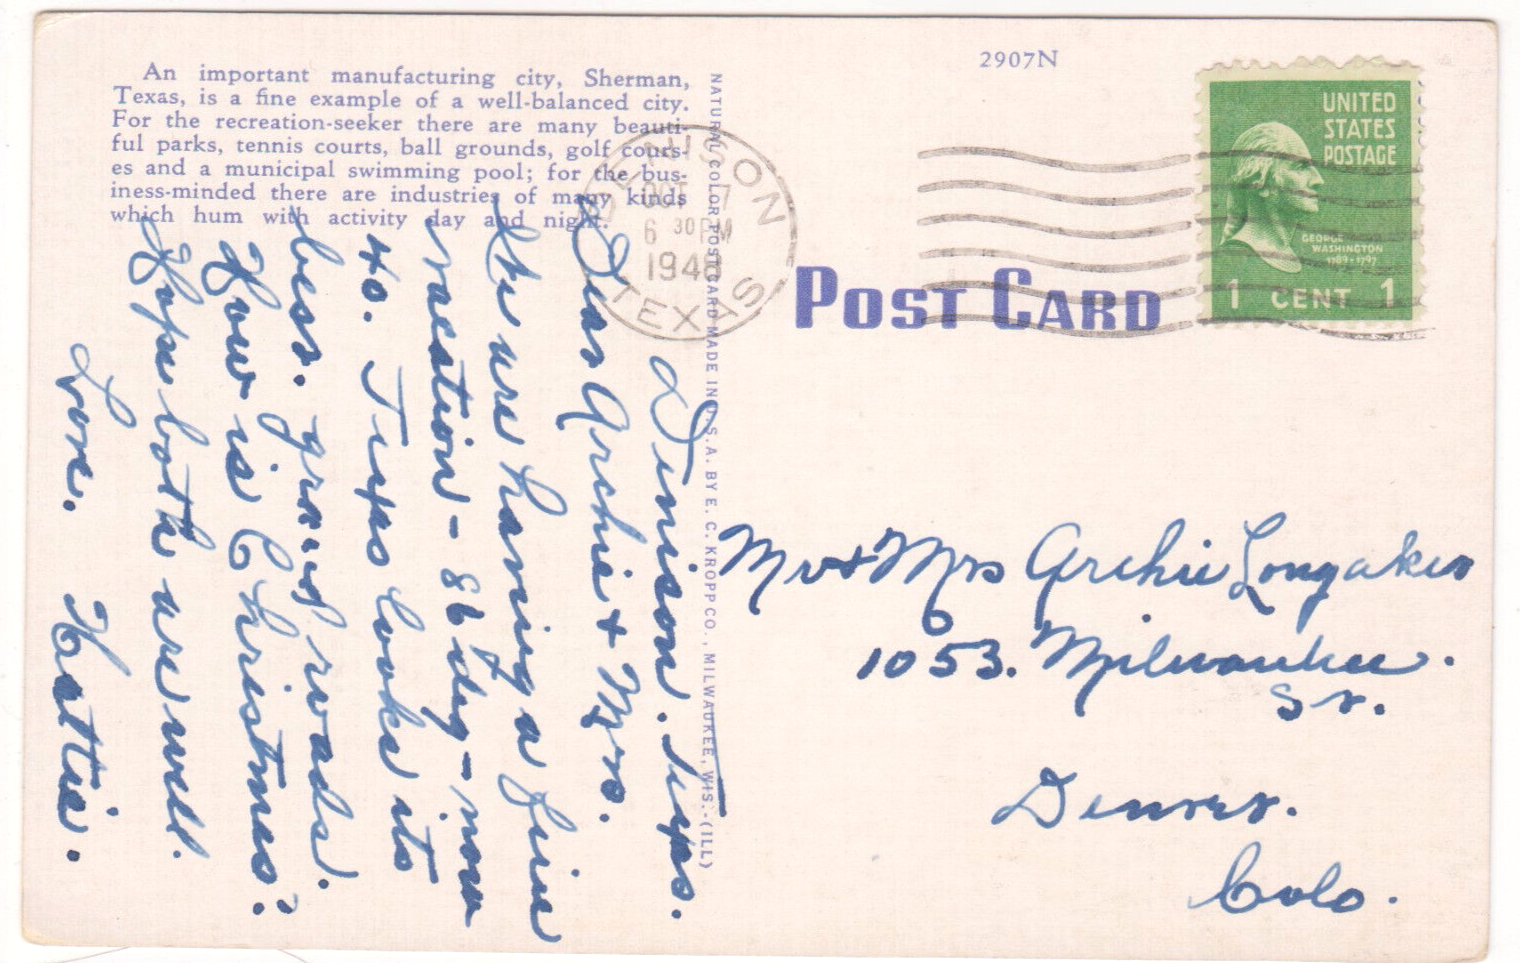 An important manufacturing city, Sherman,
Texas, is a fine example of a well-balanced city.
For the recreation-seeker there are many beauti-
ful parks, tennis courts, ball grounds, golf cours-
es and a municipal swimming pool; for the bus-
iness-minded there are industries of many kinds
which hum with activity day and night.
Denison. Texas.
Dear Archie & Mrs.
We are having a fine
vacation - 86 deg - now
40. Texas looks its
best. good roads.
How is Christmas?
Hope both are well.
Love. Hattie.
NATURAL COLOR POST CARD MADE IN U. S. A. BY E. C. KROPP CO., MILWAUKEE, WIS.-(ILL)
2907N
DENISON
OCT 7
6 30 PM
1948
TEXAS
UNITED
STATES
POSTAGE
GEORGE
WASHINGTON
1789-1797
1 CENT 1
POST CARD
Mr & Mrs Archie Longaker
1053. Milwaukee.
St.
Denver.
Colo.